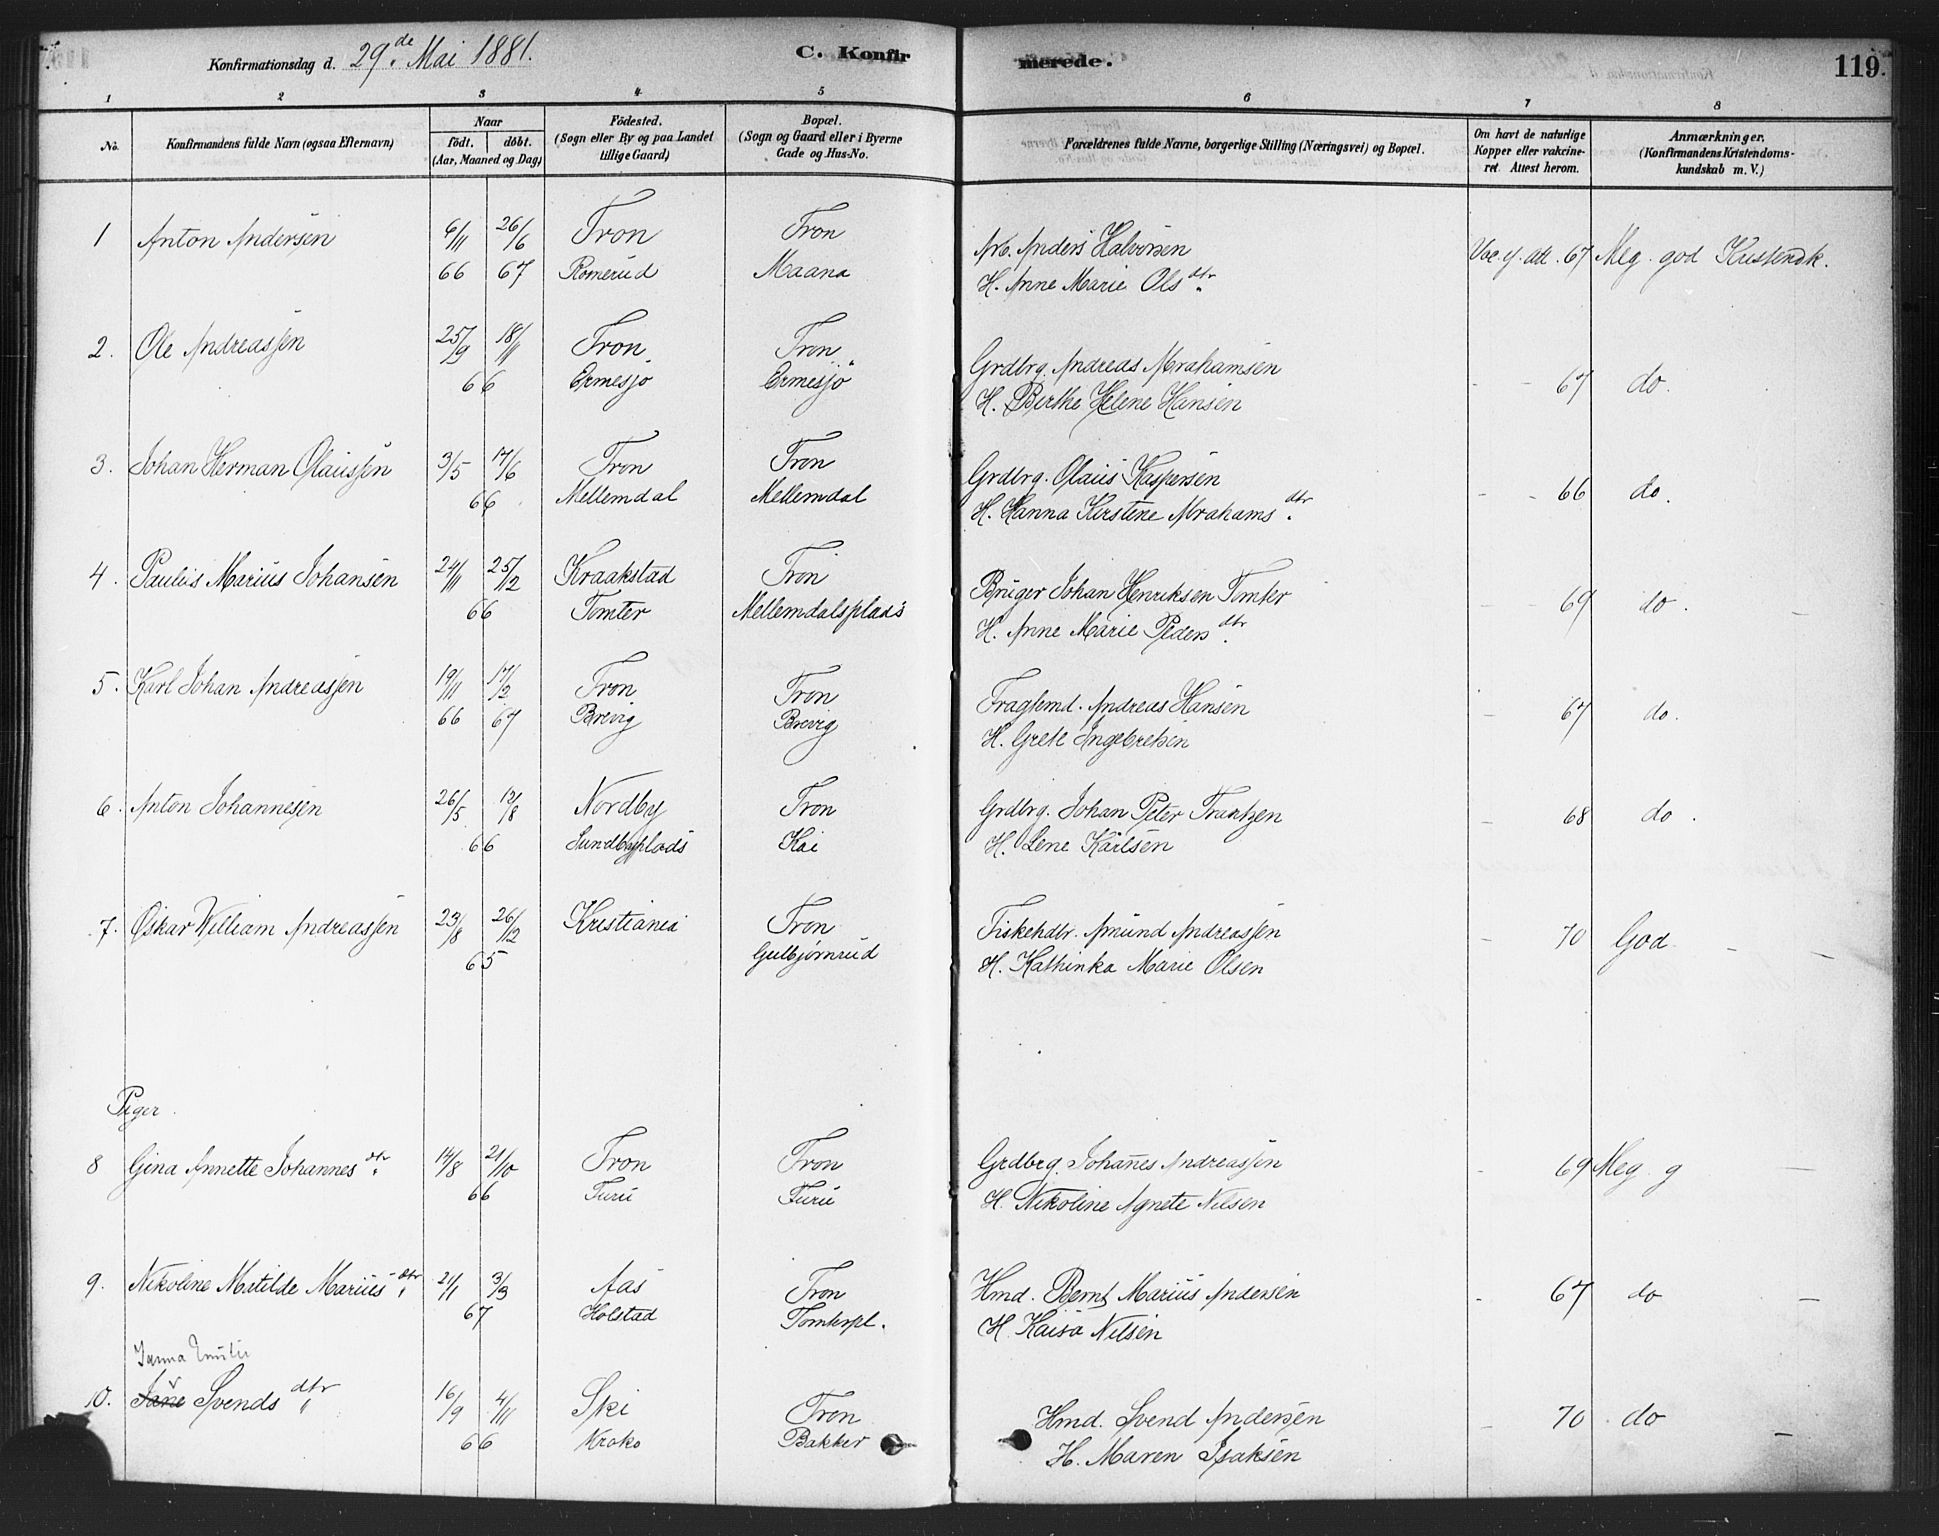 Konfirmationsdag d. 29de Mai 1881.
C. Konfirmerede.
119.
1 2 3 4 5 6 7 8
No.
Konfirmandens fulde Navn (ogsaa Efternavn)
Naar
födt. döbt.
(Aar, Maaned og Dag)
Födested.
(Sogn eller By og paa Landet
tillige Gaard)
Bopæl.
(Sogn og Gaard eller i Byerne
Gade og Hus-No.
Forældrenes fulde Navne, borgerlige Stilling (Næringsvei) og Bopæl.
Om havt de naturlige
Kopper eller vakcine-
ret. Attest herom.
Anmærkninger.
(Konfirmandens Kristendoms-
kundskab m. V.)
1 Anton Andersen 6/11 26/6 Tron Tron Arb. Anders Halvorsen Vac. y. att. 67 Meg. god Kristendk.
66 67 Romerud Maana H. Anne Marie Olsdtr
2. Ole Andreassen 25/9 18/11 Tron Tron Grdbrg. Andreas Abrahamsen - - 67 do.
66 Ermesjö Ermesjö H. Berthe Helene Hansen
3. Johan Herman Olaussen 3/5 17/6 Tron Tron Grdbrg. Olaus Kaspersen - - 66 do.
66 Mellemdal Mellemdal H. Hanna Kirstene Abrahamsdtr
4. Paulus Marius Johansen 24/11 25/12 Kraakstad Tron Bruger Johan Henriksen Tomter - - 69 do.
66 Tomter Mellemdalsplads H. Anne Marie Pedersdtr
5. Karl Johan Andreassen 19/11 17/2 Tron Tron Fragtemd. Andreas Hansen - 67 do.
66 67 Brevig Brevig H. Grete Ingebretsen
6. Anton Johannesen 26/5 /8 Nordby Tron Grdbrg. Johan Peter Frantzen - 68 do.
66 Sundbyplads Kai H. Lene Karlsen
7. Oskar William Andreassen 23/8 26/12 Kristiania Tron Fiskehdlr. Amund Andreassen - 70 God
65 Gulbjørnrud H. Kathinka Marie Olsen
Piger.
8 Gina Annette Johannesdtr 14/8 21/10 Tron Tron Grdbrg. Johanes Andreassen - 69 Meg. g
66 Furu Furu H. Nikoline Agnete Nilsen
9. Nikoline Matilde Mariusdtr 21/1 3/3 Aas Tron Hmd. Bernt Marius Andersen - 67 do
67 Holstad Tomterpl. H. Kaisa Nilsen
Janna
10. Svendsdtr 16/9 4/11 Ski Tron Hmd. Svend Andersen - 70 do
66 Bakker H. Maren Isaksen